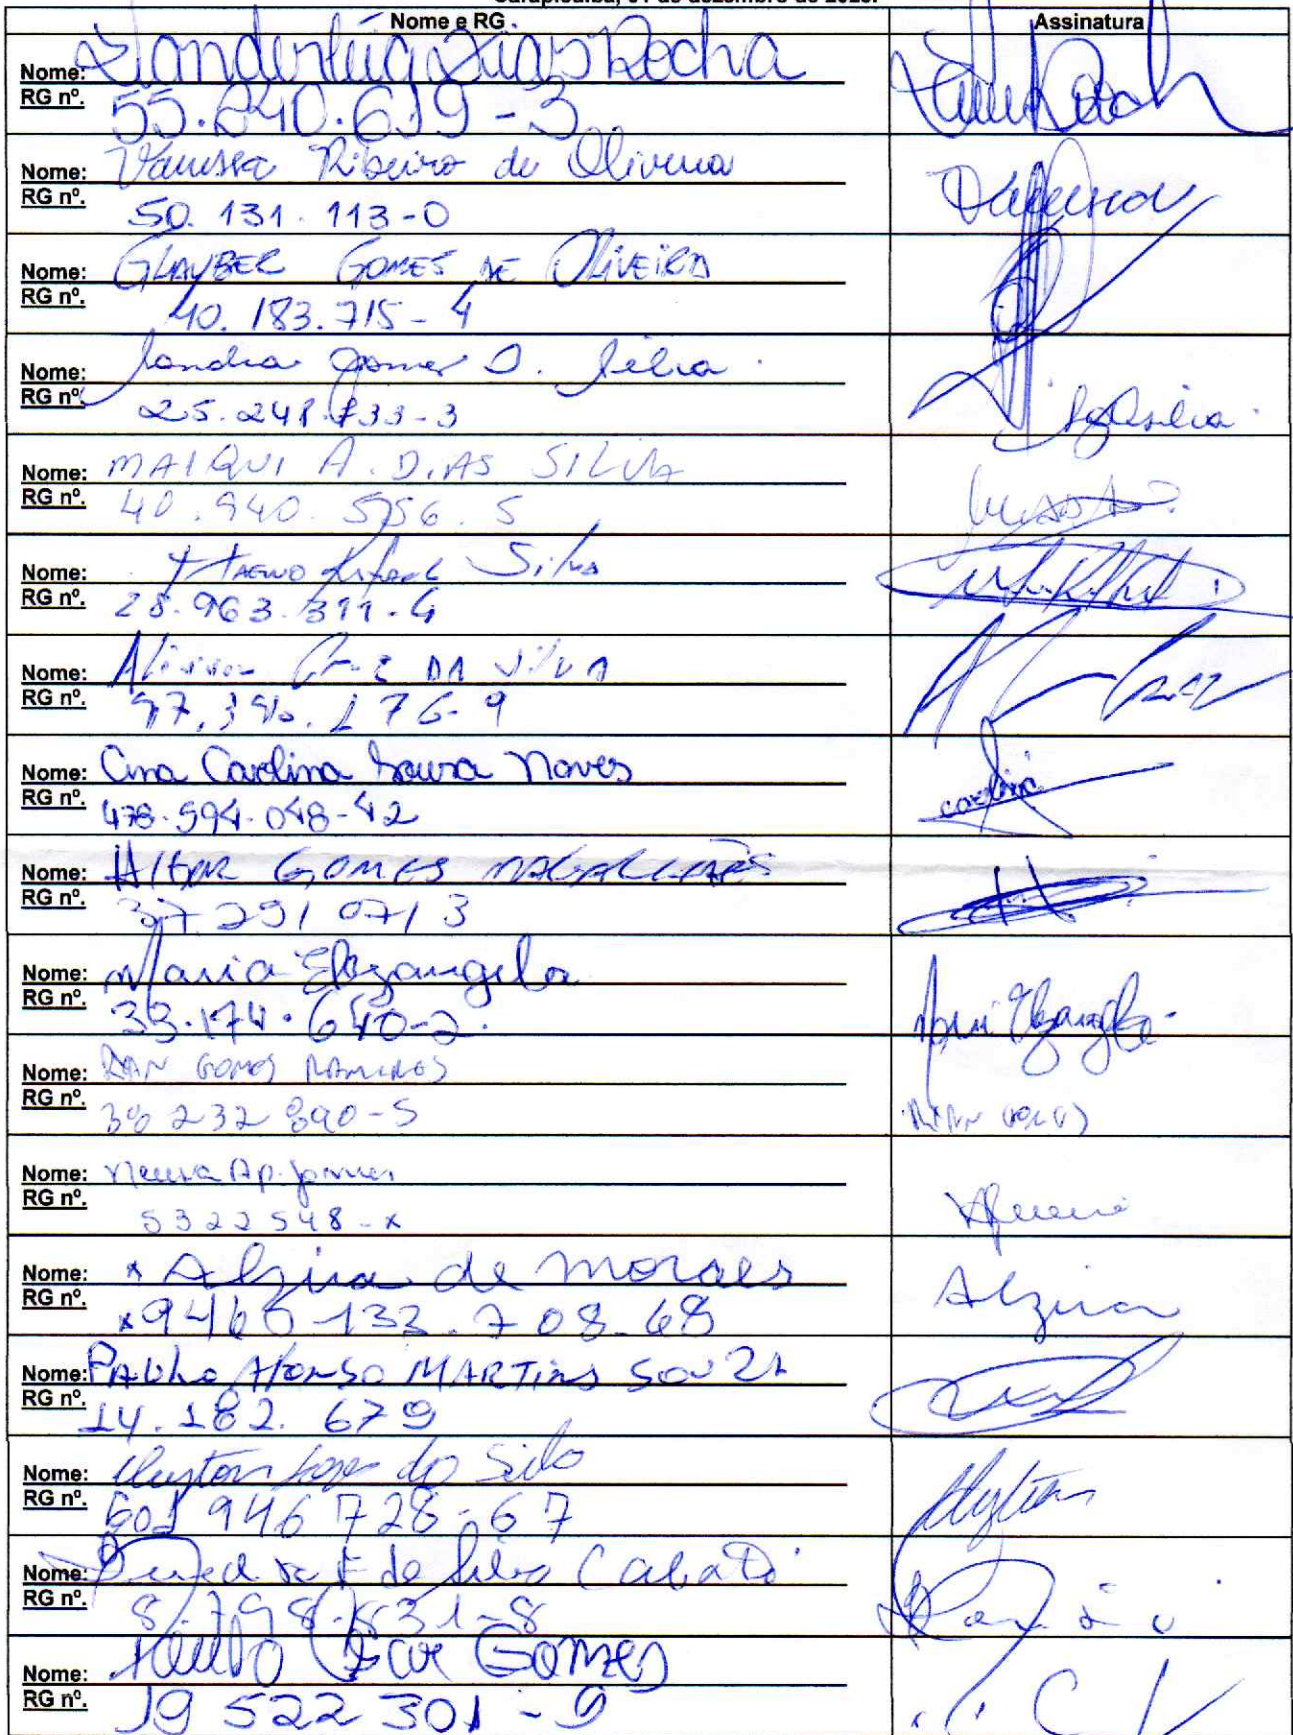 Carapicuíba, 01 de dezembro de 2023.
Nome e RG Assinatura
Nome: Vanderleia Dias Rocha
RG nº. 55.240.619-3
Nome: Vanessa Ribeiro de Oliveira
RG nº. 50.131.113-0
Nome: GLAYBER GOMES DE OLIVEIRA
RG nº. 40.183.715-4
Nome: Sandra Gomes D. Silva
RG nº. 25.248.733-3
Nome: MAIQUI A. DIAS SILVA
RG nº. 40.940.556.5
Nome: Silva
RG nº. 28.963.311-4
Nome: Cruz DA SILVA
RG nº.
Nome: Ana Carolina Souza Naves
RG nº. 478.594.048-42
carolina
Nome: GOMES MAGALHÃES
RG nº. 37 291 071 3
Nome: Maria Elizangela
RG nº. 33.174.640-2
Maria Elizangela
Nome: RIAN GOMES RAMIRES
RG nº. 38 232 890-5
Nome: Neusa Ap. Gomes
RG nº. 5322548-x
Nome: x Alzira de moraes
RG nº. x 9460-133.708-68
Alzira
Nome: PAULO AFONSO MARTINS SOUZA
RG nº. 14.182.679
Nome: Cleyton Lopes da Silva
RG nº. 601 946 728-67
Cleyton
Nome: F da Silva
RG nº. 8.798.831-8
Nome: Gomes
RG nº. 19 522 301-9